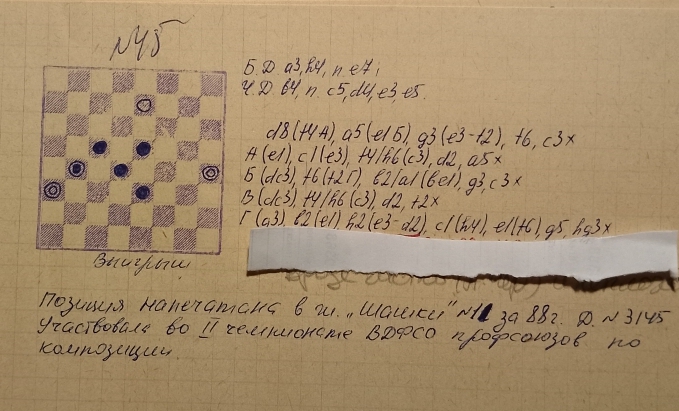 №45
Б.Д. a3, h4, п. e7;
Ч.Д. b4, п. c5, d4, e3, e5.
d8(f4A), a5(e1Б), g3(e3-f2), f6, c3x
A(e1), c1(e3), f4/h6(c3), d2, a5x
Б(dc3), f6(f2Г), b2/a1(be1), g3, c3x
В(dc3), f4/h6(c3), d2, f2x
Г(a3), b2(e1), h2(e3-d2), c1(h4), e1(f6), g5, hg3x
Выигрыш
Позиция напечатана в ж. „Шашки" №11 за 88г. Д. №3145
Участвовала во II чемпионате ВДФСО профсоюзов по
композиции.